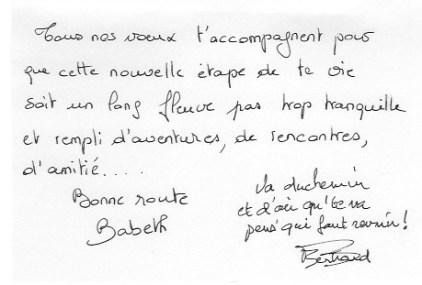 Tous nos voeux t'accompagnent pour
que cette nouvelle étape de ta vie
soit un long fleuve pas trop tranquille
et rempli d'aventures, de rencontres,
d'amitié....
Bonne route
Babeth
Va duchemin
et d'où qu'te va
pens' qui faut revnir!
Bertrand